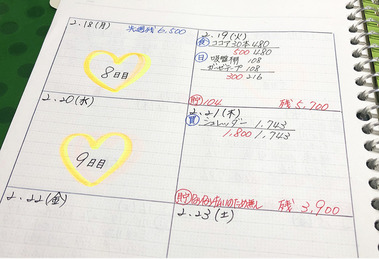 2.18(月)
先週残 6,500
8日目
2.19(火)
食 ココア30本 480
500 480
日 吸盤棚 108
ガーゼテープ 108
300 216
貯 104 残 5,700
2.20(水)
9日目
2.21(木)
シュレッダー 1,743
1,800 1,743
貯 残 3,900
2.22(金)
2.23(土)